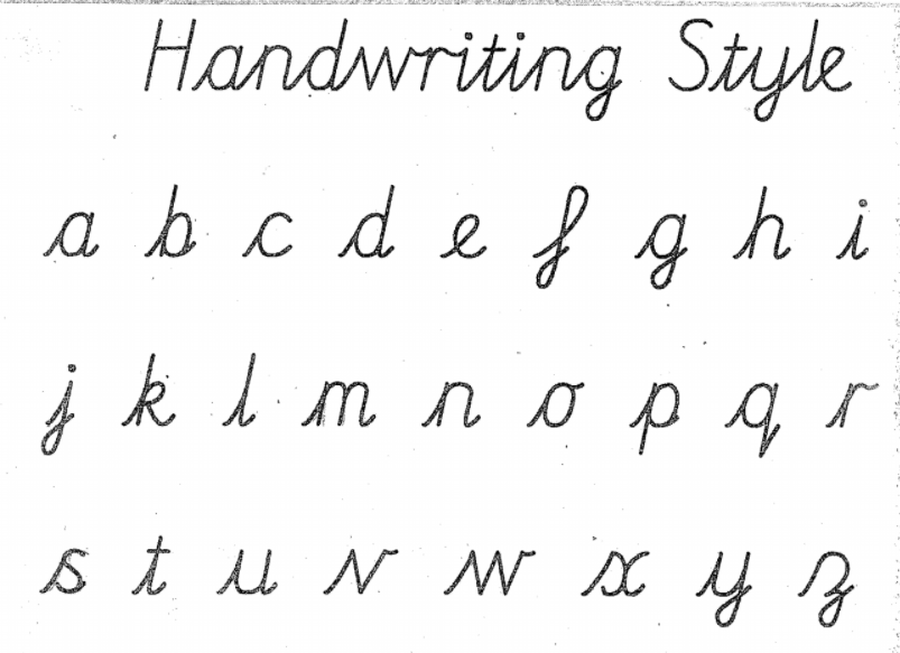 Handwriting Style
a b c d e f g h i
j k l m n o p q r
s t u v w x y z